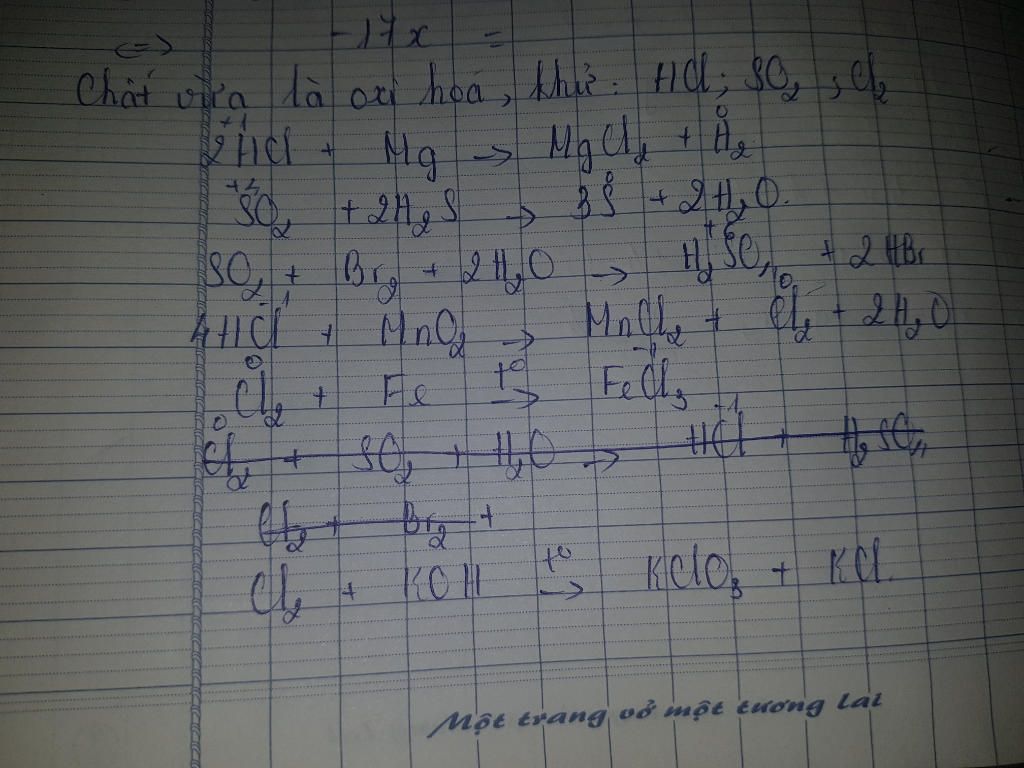 <=> -17x =
Chất vừa là oxi hoá, khử: HCl; SO2; Cl2
+1 0
2HCl + Mg → MgCl2 + H2
+4 0
SO2 + 2H2S → 3S + 2H2O.
+6
SO2 + Br2 + 2H2O → H2SO4 + 2HBr
-1 0
4HCl + MnO2 → MnCl2 + Cl2 + 2H2O
0 t° -1
Cl2 + Fe → FeCl3
0 -1
Cl2 + SO2 + H2O → HCl + H2SO4
Cl2 + Br2 +
t°
Cl2 + KOH → KClO3 + KCl.
Một trang vở một tương lai